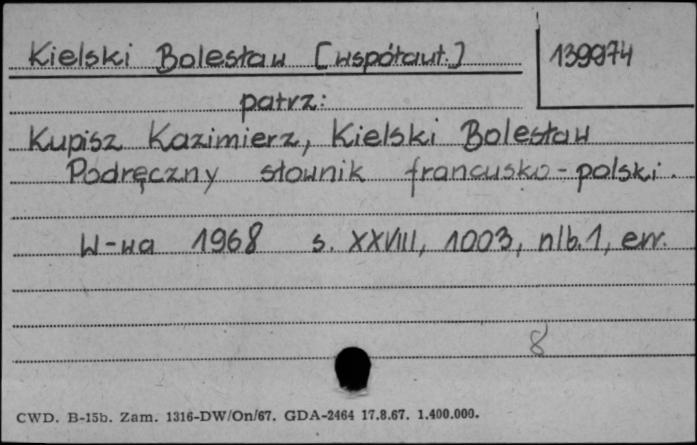 Kielski Bolesław [współaut.]
139974
patrz:
Kupisz Kazimierz, Kielski Bolesław
Podręczny słownik francusko-polski.
W-wa 1968 s. XXVIII, 1003, nlb.1, err.
8
CWD. B-15b. Zam. 1316-DW/On/67. GDA-2464 17.8.67. 1.400.000.